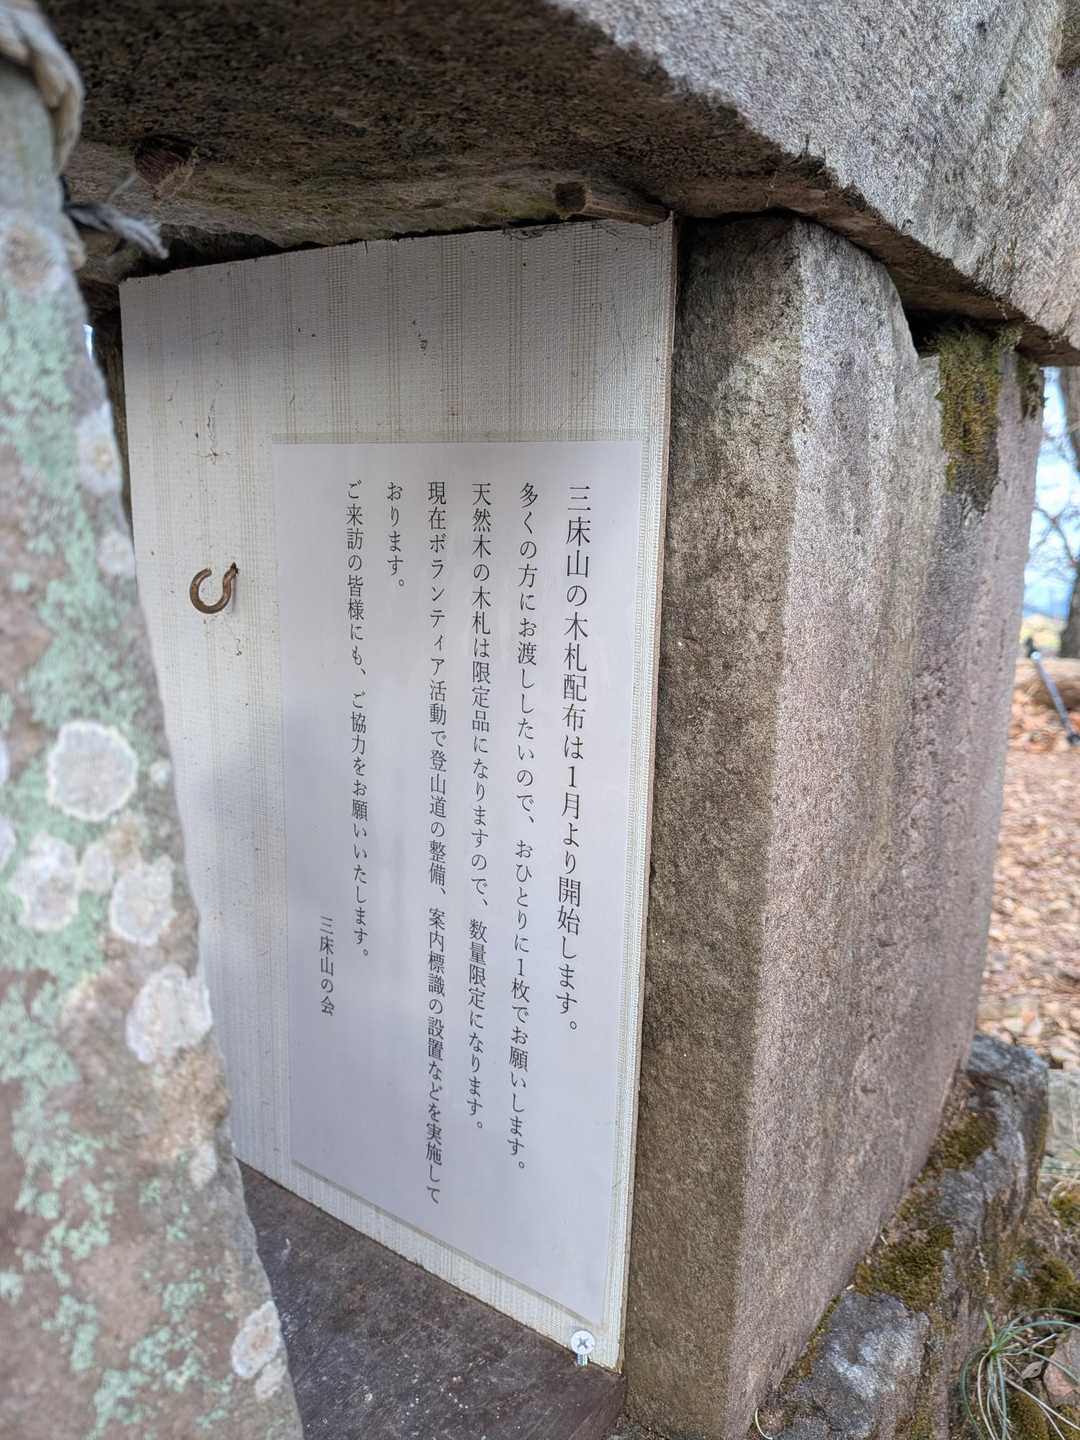 三床山の木札配布は1月より開始します。
多くの方にお渡ししたいので、おひとりに1枚でお願いします。
天然木の木札は限定品になりますので、数量限定になります。
現在ボランティア活動で登山道の整備、案内標識の設置などを実施して
おります。
ご来訪の皆様にも、ご協力をお願いいたします。
三床山の会